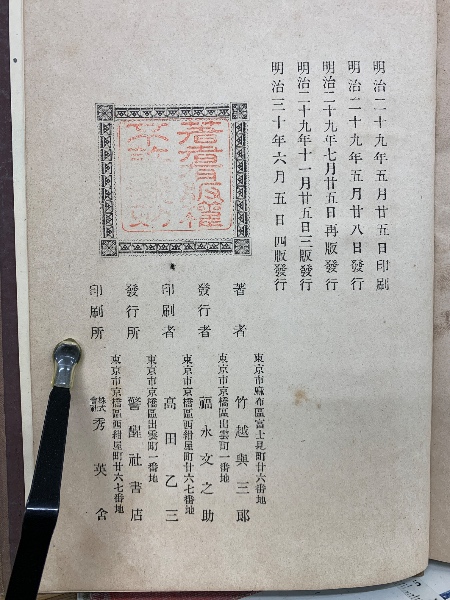 明治二十九年五月廿五日印刷
明治二十九年五月廿八日發行
明治二十九年七月廿五日再版發行
明治二十九年十一月廿五日三版發行
明治三十年六月五日四版發行
著者有版權
東京市麻布區富士見町廿六番地
著者 竹越與三郎
東京市京橋區出雲町一番地
發行者 福永文之助
東京市京橋區西紺屋町廿六七番地
印刷者 高田乙三
東京市京橋區出雲町一番地
發行所 警醒社書店
東京市京橋區西紺屋町廿六七番地
印刷所 株式會社 秀英舍